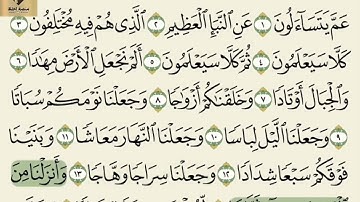 عَمَّ يَتَسَآءَلُونَ ١ عَنِ ٱلنَّبَإِ ٱلۡعَظِيمِ ٢ ٱلَّذِي هُمۡ فِيهِ مُخۡتَلِفُونَ ٣
كَلَّا سَيَعۡلَمُونَ ٤ ثُمَّ كَلَّا سَيَعۡلَمُونَ ٥ أَلَمۡ نَجۡعَلِ ٱلۡأَرۡضَ مِهَٰدٗا ٦
وَٱلۡجِبَالَ أَوۡتَادٗا ٧ وَخَلَقۡنَٰكُمۡ أَزۡوَٰجٗا ٨ وَجَعَلۡنَا نَوۡمَكُمۡ سُبَاتٗا
٩ وَجَعَلۡنَا ٱلَّيۡلَ لِبَاسٗا ١٠ وَجَعَلۡنَا ٱلنَّهَارَ مَعَاشٗا ١١ وَبَنَيۡنَا
فَوۡقَكُمۡ سَبۡعٗا شِدَادٗا ١٢ وَجَعَلۡنَا سِرَاجٗا وَهَّاجٗا ١٣ وَأَنزَلۡنَا مِنَ